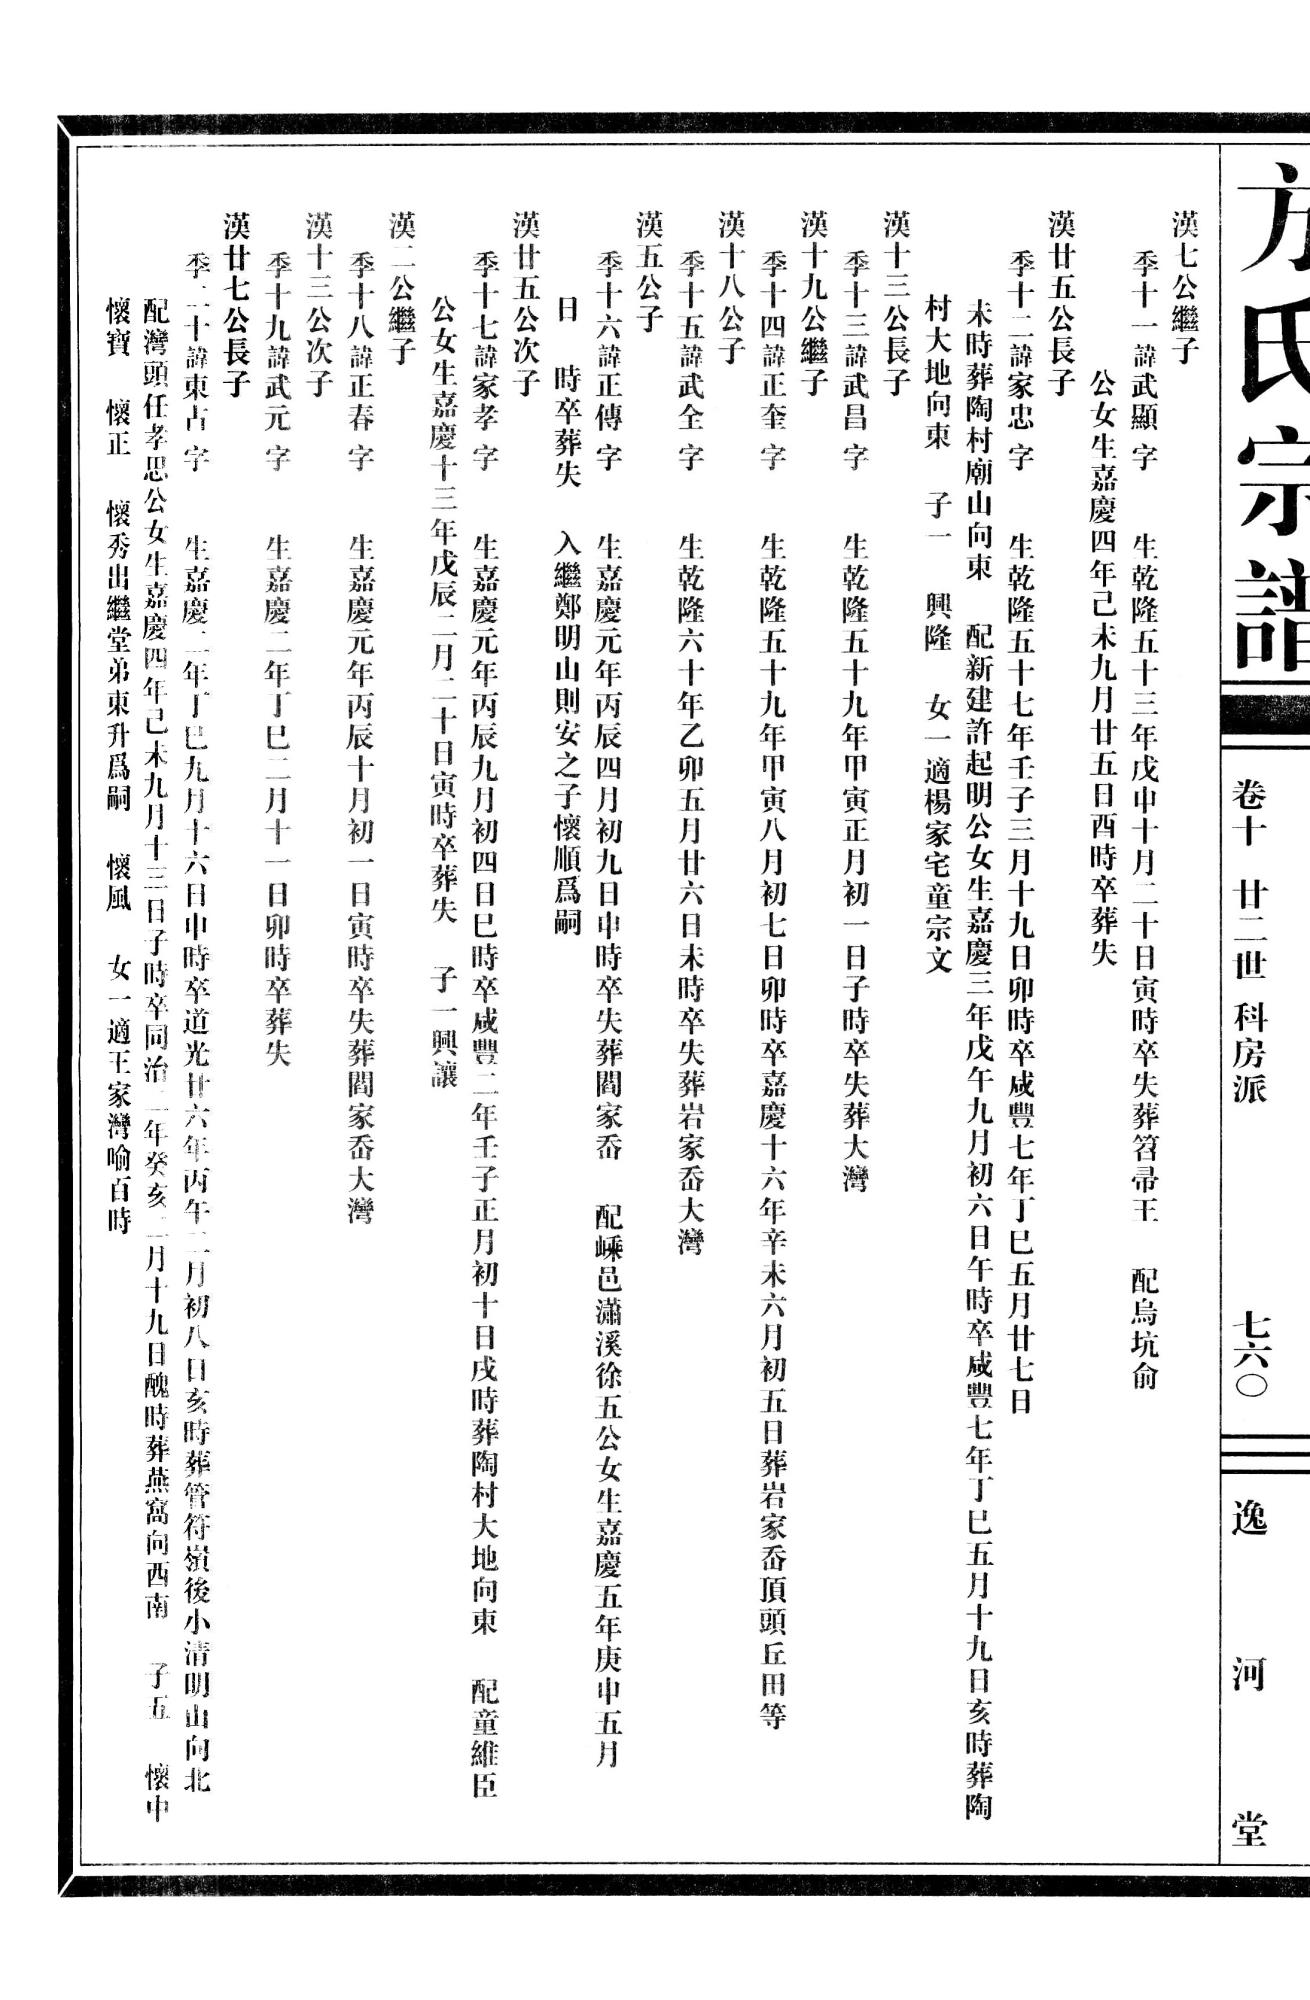 方氏宗譜
卷十 廿二世 科房派 七六〇
逸河堂
漢七公繼子
季十一諱武顯 字 生乾隆五十三年戊申十月二十日寅時卒失葬笤帚王 配烏坑俞
公女生嘉慶四年己未九月廿五日酉時卒葬失
漢廿五公長子
季十二諱家忠 字 生乾隆五十七年壬子三月十九日卯時卒咸豐七年丁巳五月廿七日
未時葬陶村廟山向東 配新建許起明公女生嘉慶三年戊午九月初六日午時卒咸豐七年丁巳五月十九日亥時葬陶
村大地向東 子一 興隆 女一適楊家宅童宗文
漢十三公長子
季十三諱武昌 字 生乾隆五十九年甲寅正月初一日子時卒失葬大灣
漢十九公繼子
季十四諱正奎 字 生乾隆五十九年甲寅八月初七日卯時卒嘉慶十六年辛未六月初五日葬岩家岙頂頭丘田等
漢十八公子
季十五諱武全 字 生乾隆六十年乙卯五月廿六日未時卒失葬岩家岙大灣
漢五公子
季十六諱正傳 字 生嘉慶元年丙辰四月初九日申時卒失葬閻家岙 配嵊邑瀟溪徐五公女生嘉慶五年庚申五月
日 時卒葬失 入繼鄭明山則安之子懷順爲嗣
漢廿五公次子
季十七諱家孝 字 生嘉慶元年丙辰九月初四日巳時卒咸豐二年壬子正月初十日戌時葬陶村大地向東 配童維臣
公女生嘉慶十三年戊辰二月二十日寅時卒葬失 子一興讓
漢二公繼子
季十八諱正春 字 生嘉慶元年丙辰十月初一日寅時卒失葬閻家岙大灣
漢十三公次子
季十九諱武元 字 生嘉慶二年丁巳二月十一日卯時卒葬失
漢廿七公長子
季二十諱東占 字 生嘉慶二年丁巳九月十六日申時卒道光廿六年丙午二月初八日亥時葬管符嶺後小清明山向北
配灣頭任孝思公女生嘉慶四年己未九月十三日子時卒同治二年癸亥二月十九日醜時葬燕窩向西南 子五 懷中
懷寶 懷正 懷秀出繼堂弟東升爲嗣 懷風 女一適王家灣喻百時